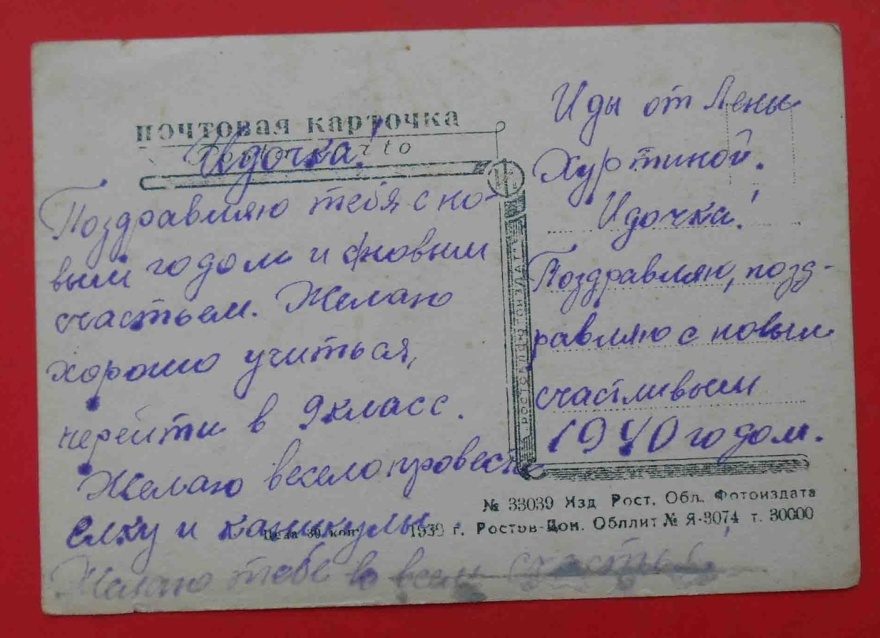 почтовая карточка
Идочка!
Поздравляю тебя с но-
вым годом и с новым
счастьем. Желаю
хорошо учиться,
перейти в 9 класс.
Желаю весело провести
елку и каникулы.
Желаю тебе во всем счастья.
Иды от Лены
Хуртиной.
Идочка!
Поздравляю, позд-
равляю с новым
счастливым
1940 годом.
РОСТОБЛФОТОИЗДАТ
№ 33039 Изд. Рост. Обл. Фотоиздата
Цена 30 коп. 1939 г. Ростов-Дон. Обллит № Я-3074 т. 30000